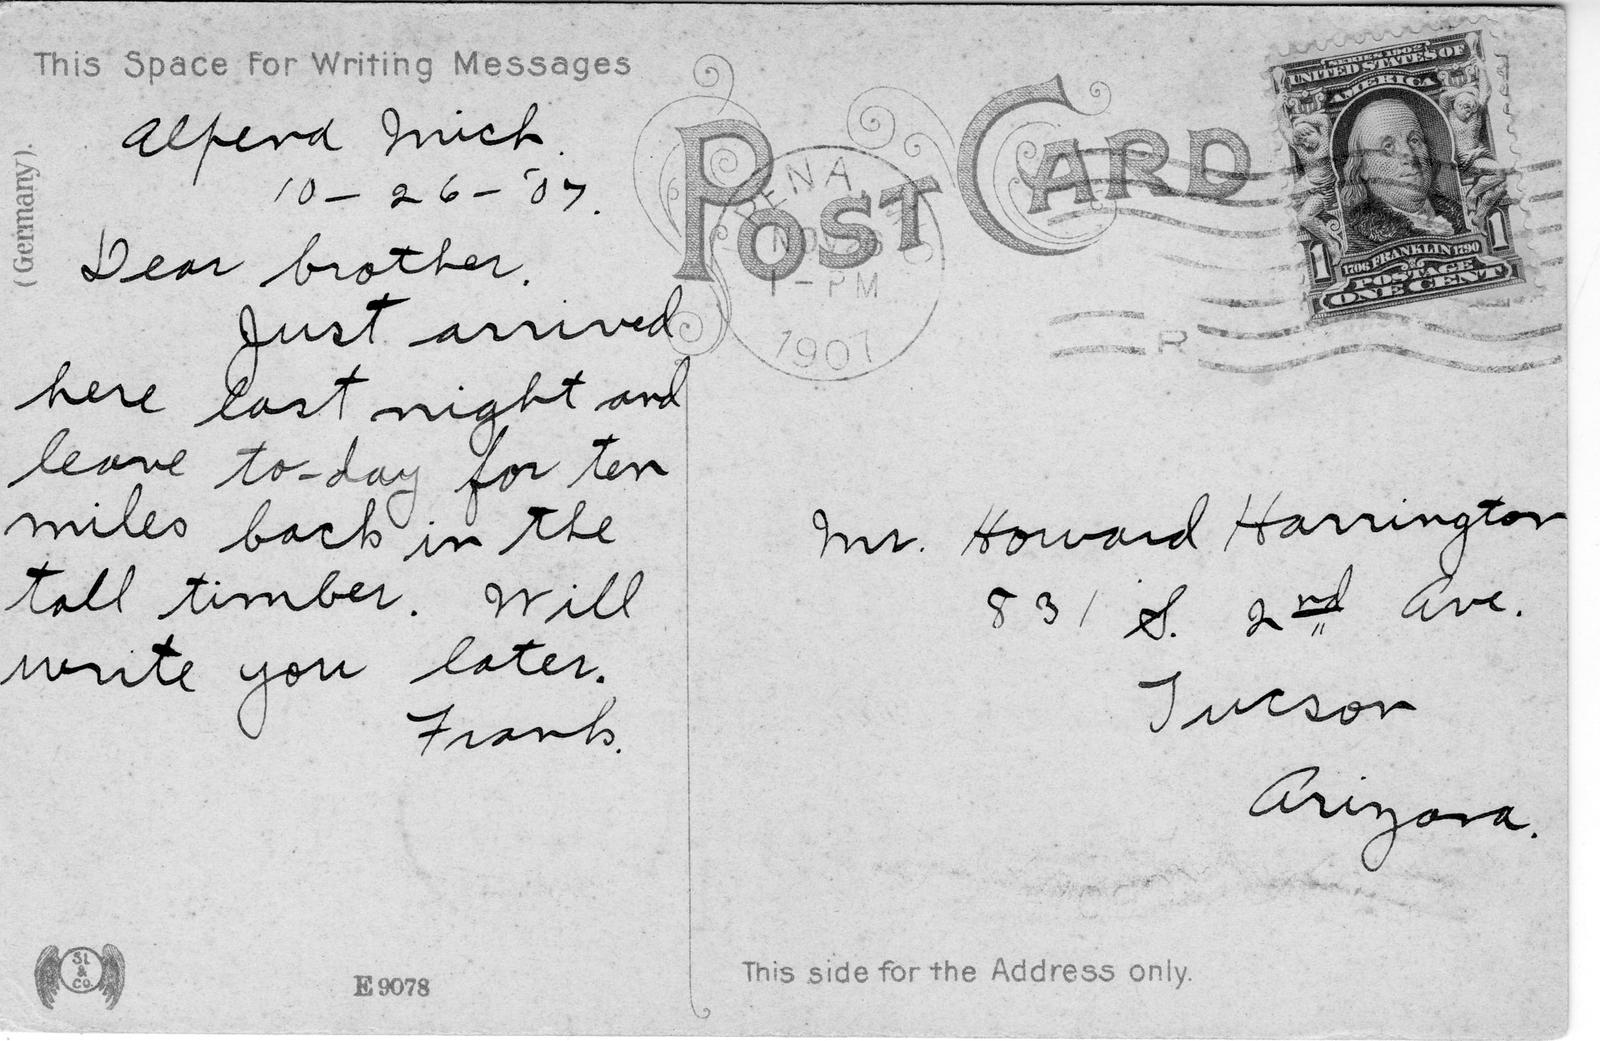 This Space For Writing Messages
(Germany).
Alpena Mich.
10-26-'07.
Dear brother.
Just arrived
here last night and
leave to-day for ten
miles back in the
tall timber. Will
write you later.
Frank.
St & Co.
E 9078
POST CARD
PENA,
NOV
1-PM
1907
R
SERIES 1902
UNITED STATES OF
AMERICA
1706 FRANKLIN 1790
1 1
POSTAGE
ONE CENT
Mr. Howard Harrington
831 S. 2nd Ave.
Tucson
Arizona.
This side for the Address only.